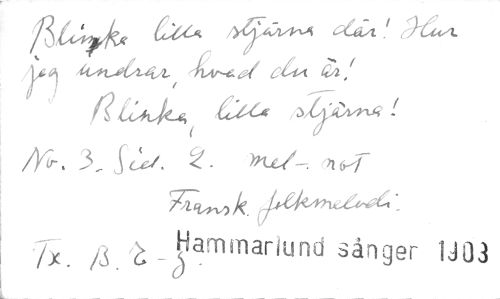 Blinka lilla stjärna där! Hur
jag undrar, hvad du är!
Blinka, lilla stjärna!
No. 3. Sid. 2. mel-. not
Fransk folkmelodi.
Tx. B. E-g.
Hammarlund sånger 1903